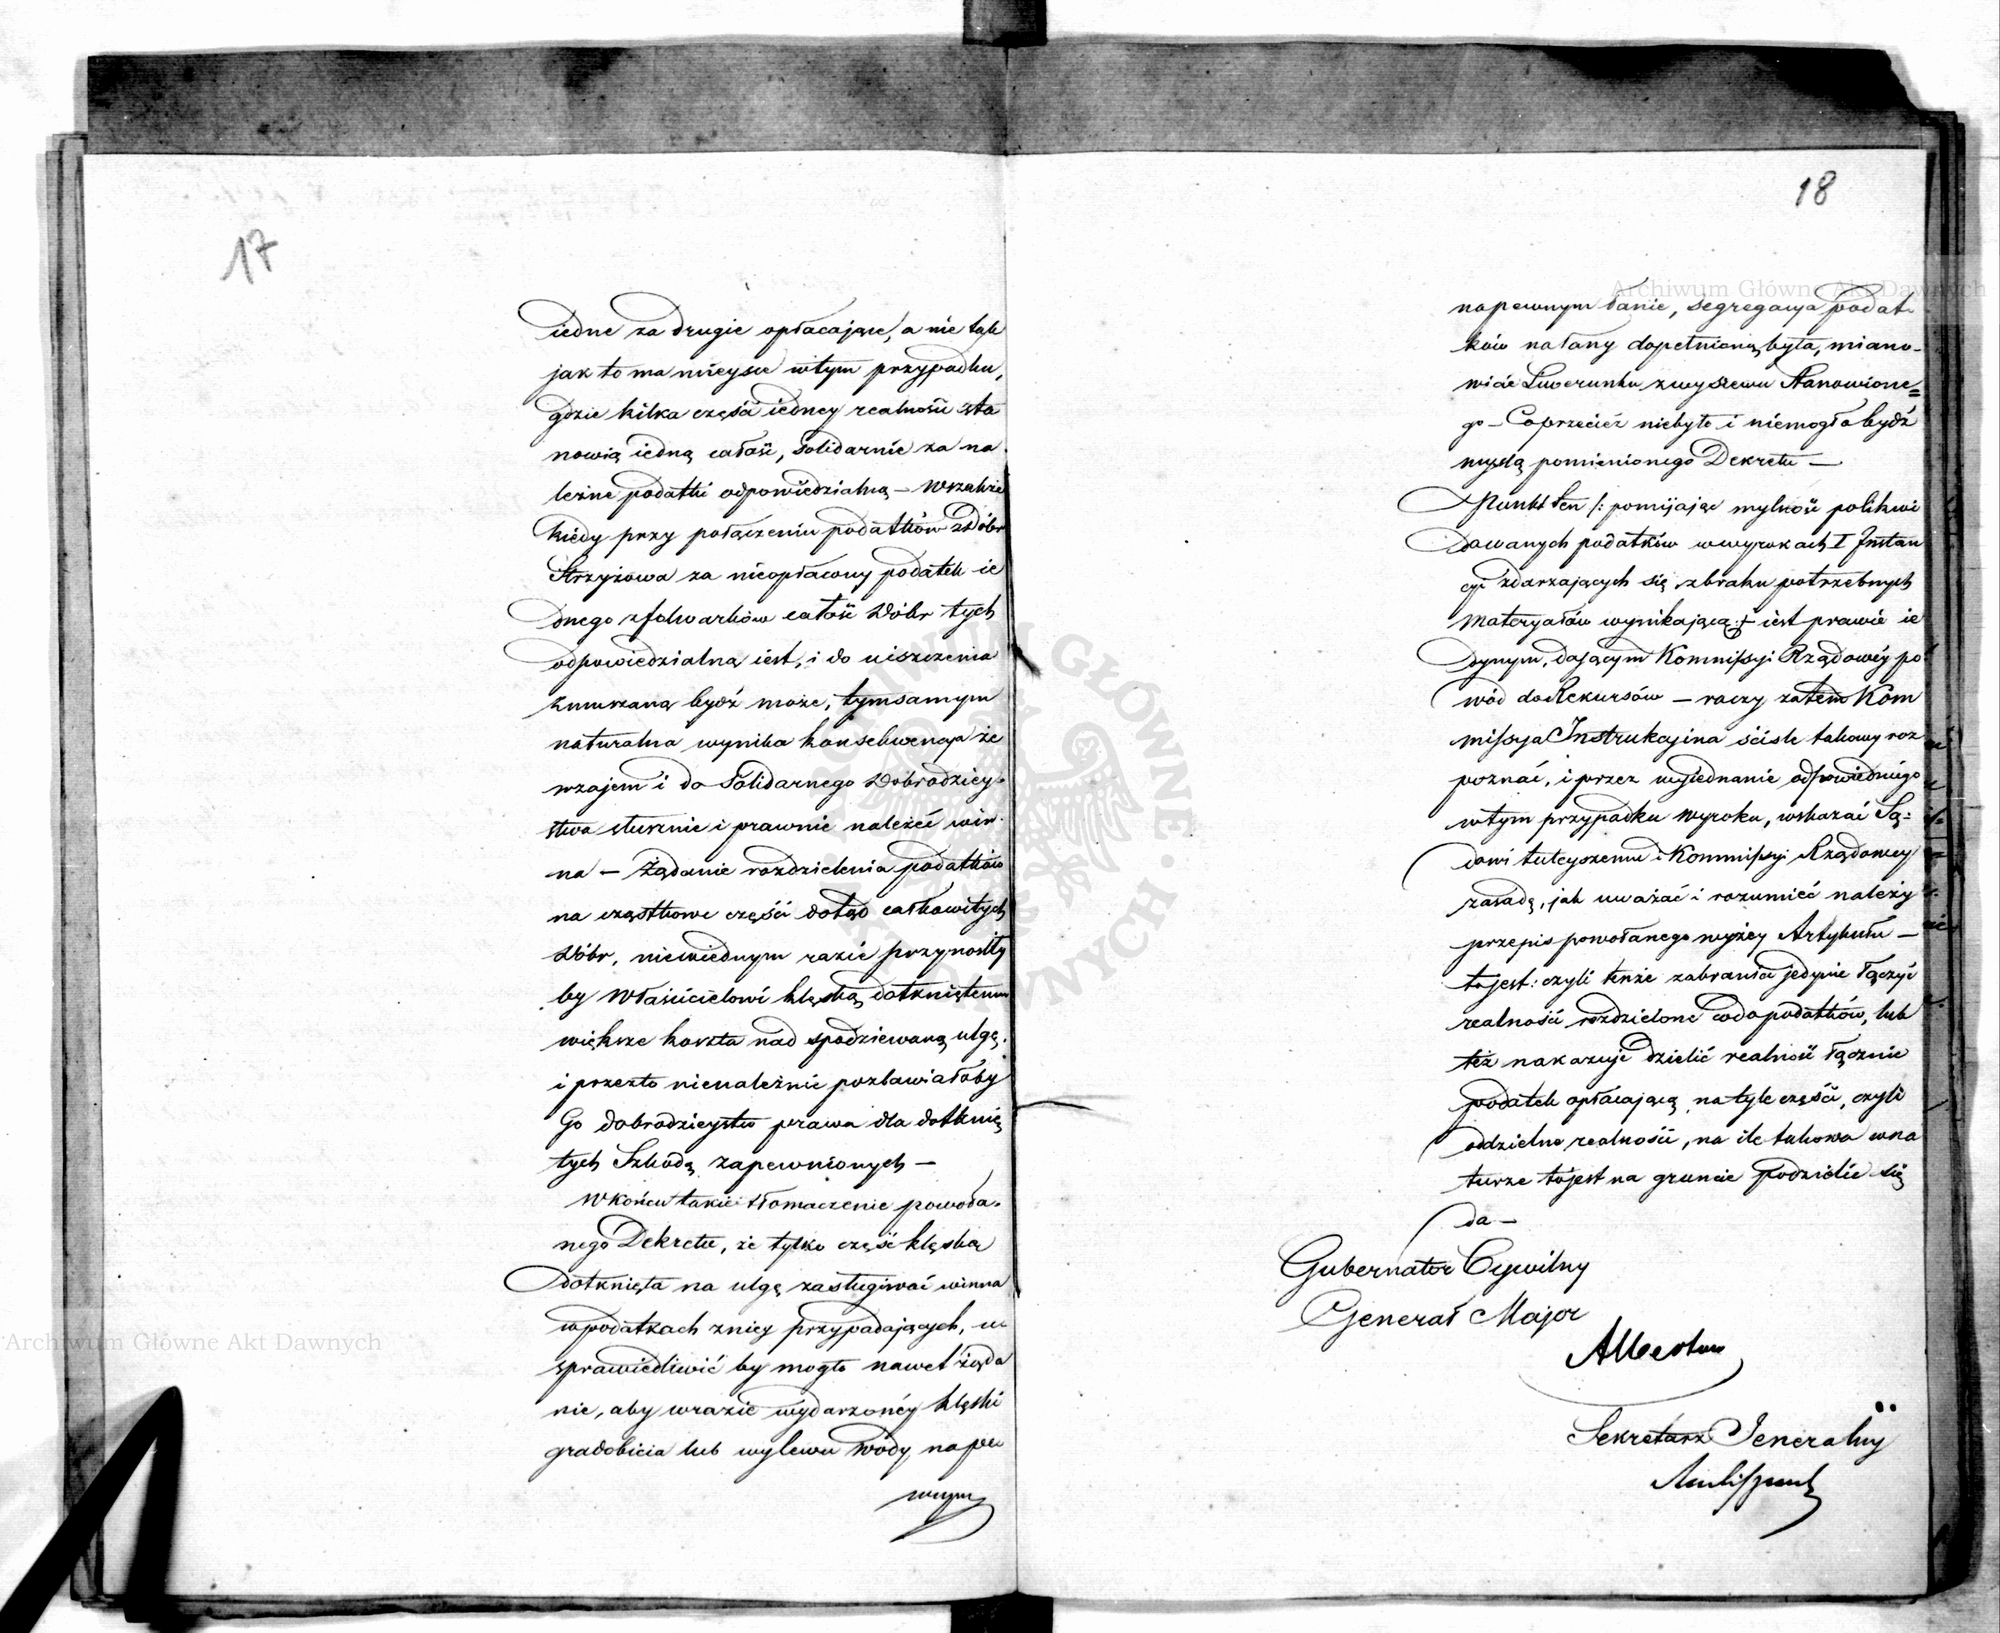 17
iedne za drugie opłacające, a nie tak
jak to ma mieysce wtym przypadku,
gdzie kilka części iedney realności sta
nowią iedną całość, solidarnie za na
leżne podatki odpowiedzialną – Wszakże
kiedy przy połączeniu podatków z Dóbr
Strzyżowa za nieopłacony podatek ie
dnego z folwarków całość Dóbr tych
odpowiedzialną iest, i do uiszczenia
zmuszaną bydź może, tymsamym
naturalna wynika konsekwencya że
wzajem i do Solidarnego Dobrodziey-
stwa słusznie i prawnie należeć win-
na – Żądanie rozdzielenia podatków
na cząstkowe części dotąd całkowitych
Dóbr, niewiednym razie przynosiły
by Właścicielowi klęską dotkniętemu
większe koszta nad spodziewaną ulgę,
i przezto nienależnie pozbawiałoby
Go dobrodzieystw prawa dla dotknię
tych Szkodą zapewnionych –
Wkońcu takie tłomaczenie powoła-
nego Dekretu, że tylko część klęską
dotknięta na ulgę zasługiwać winna
wpodatkach zniey przypadających, u
sprawiedliwić by mogło nawet żąda
nie, aby wrazie wydarzonéy klęski
gradobicia lub wylewu wody na pe
wnym
18
napewnym łanie, segregacya podat-
ków na łany dopełnioną była, miano-
wicie Liwerunku zwyszewu Stanowione=
go – Coprzecież niebyło i niemogło bydź
myślą pomienionego Dekretu –
Punkt ten /: pomijając mylność polikwi
dowanych podatków wwyrokach I Instan
cyi zdarzających się, zbraku potrzebnych
materyałów wynikającą :/ iest prawie ie
dynym, dającym Kommissyi Rządowéy po
wód do Rekursów – raczy zatem Kom
missya Instrukcyina ściśle takowy roz
poznać, i przez wyiednanie odpowiedniego
wtym przypadku wyroku, wskazać Są=
dowi tuteyszemu i Kommissyi Rządowey
zasadę, jak uważać i rozumieć należy
przepis powołanego wyżey Artykułu –
tojest: czyli tenże zabrania jedynie łączyć
realności rozdzielone codo podatków, lub
też nakazuje dzielić realność łącznie
podatek opłacającą, na tyle części, czyli
oddzielne realności, na ile takowa wna
turze tojest na gruncie podzielić się
da –
Gubernator Cywilny
Generał Major
Sekretarz Jeneralny
Archiwum Główne Akt Dawnych
Archiwum Główne Akt Dawnych